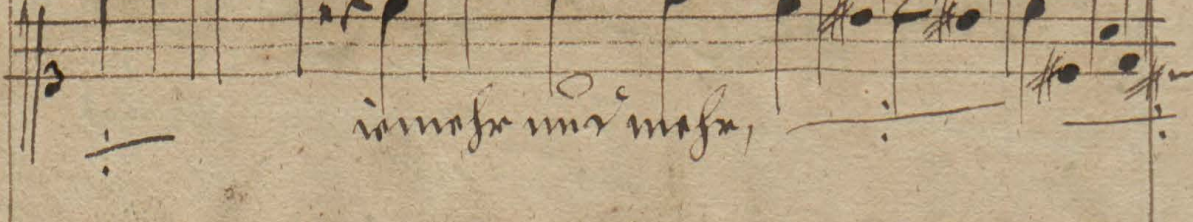 iemehr und mehr,